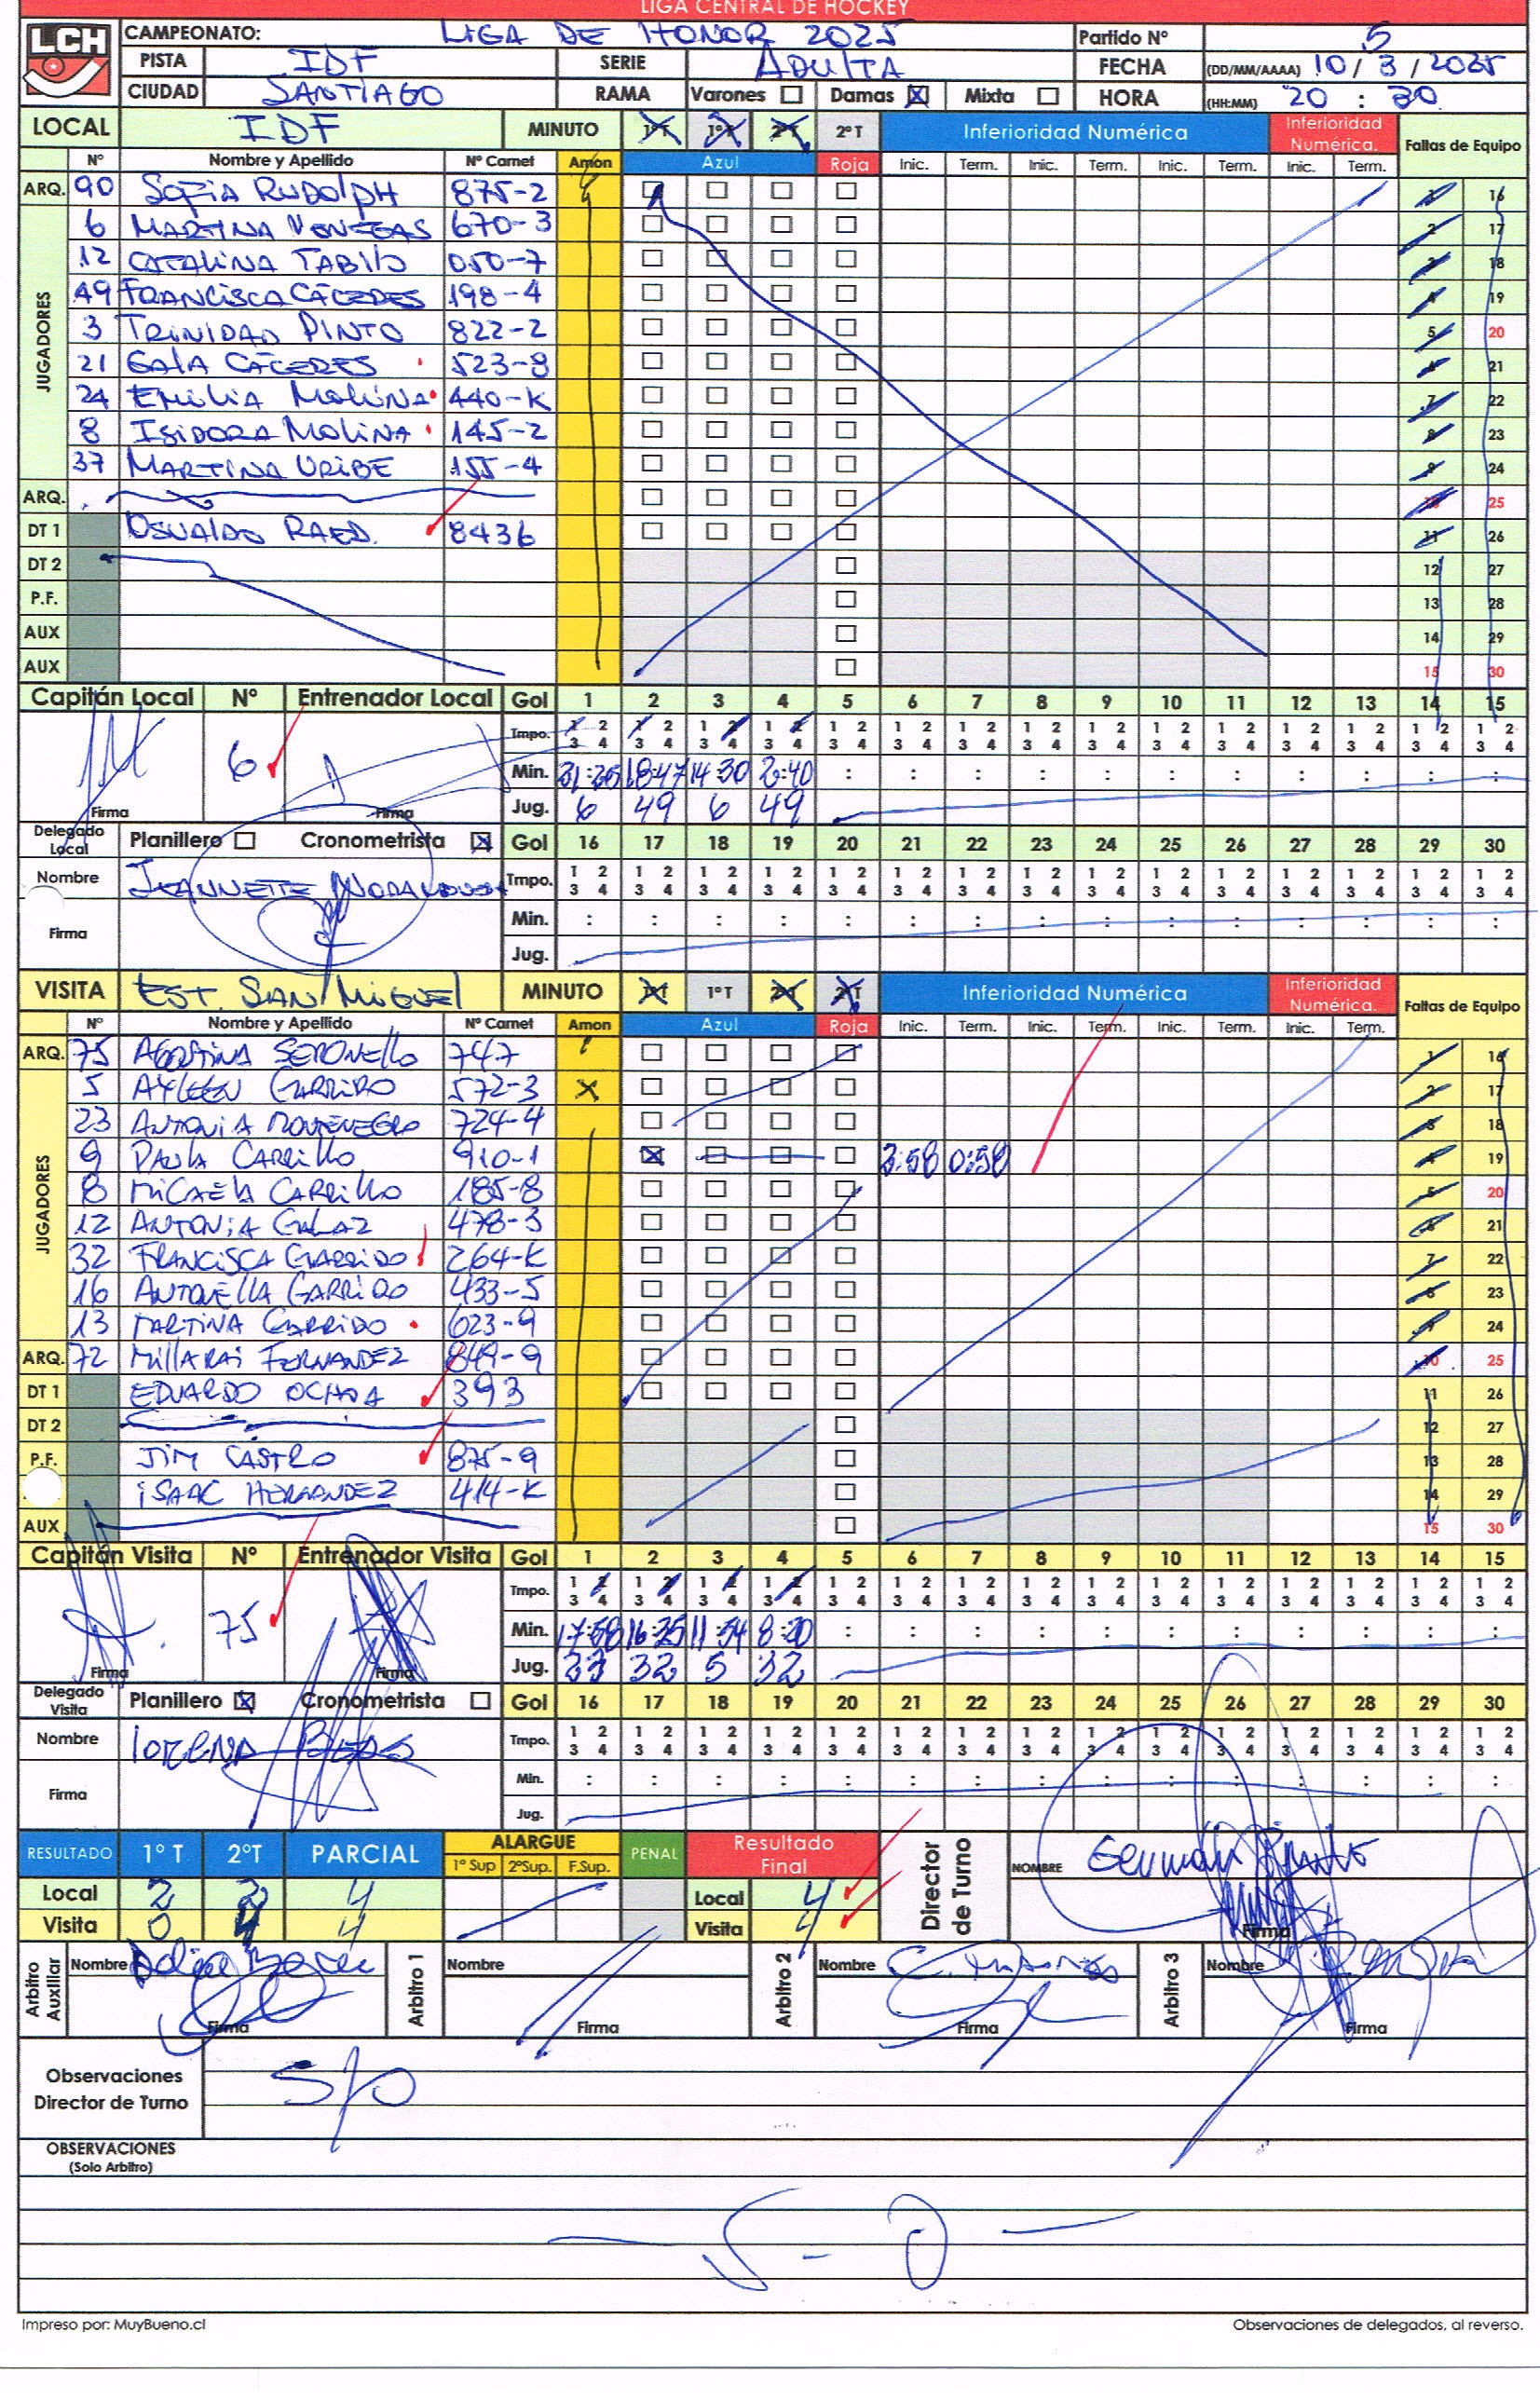 LIGA CENTRAL DE HOCKEY
LCH
CAMPEONATO: LIGA DE HONOR 2025 Partido Nº 5
PISTA IDF SERIE ADULTA FECHA (DD/MM/AAAA) 10/3/2025
CIUDAD SANTIAGO RAMA Varones Damas X Mixta HORA (HH:MM) 20:30
LOCAL IDF MINUTO 1ºT 1ºT 2ºT 2ºT Inferioridad Numérica Inferioridad Numérica. Faltas de Equipo
Nº Nombre y Apellido Nº Carnet Amon Azul Roja Inic. Term. Inic. Term. Inic. Term. Inic. Term.
ARQ. 90 SOFIA RUDOLPH 875-2 1 16
JUGADORES
6 MARTINA VENEGAS 670-3 2 17
12 CATALINA TABILO 050-7 3 18
49 FRANCISCA CÁCERES 198-4 4 19
3 TRINIDAD PINTO 822-2 5 20
21 GALA CÁCERES 523-8 6 21
24 EMILIA MOLINA 440-K 7 22
8 ISIDORA MOLINA 145-2 8 23
37 MARTINA URIBE 155-4 9 24
ARQ. 10 25
DT 1 OSVALDO RAED. 8436 11 26
DT 2 12 27
P.F. 13 28
AUX 14 29
AUX 15 30
Capitán Local Nº Entrenador Local Gol 1 2 3 4 5 6 7 8 9 10 11 12 13 14 15
Tmpo. 1 2 1 2 1 2 1 2 1 2 1 2 1 2 1 2 1 2 1 2 1 2 1 2 1 2 1 2 1 2
3 4 3 4 3 4 3 4 3 4 3 4 3 4 3 4 3 4 3 4 3 4 3 4 3 4 3 4 3 4
6 Min. 18:47 14:30 2:40 : : : : : : : : : : :
Firma Firma Jug. 6 49 6 49
Delegado Local Planillero Cronometrista X Gol 16 17 18 19 20 21 22 23 24 25 26 27 28 29 30
Nombre JEANNETTE Tmpo. 1 2 1 2 1 2 1 2 1 2 1 2 1 2 1 2 1 2 1 2 1 2 1 2 1 2 1 2 1 2
3 4 3 4 3 4 3 4 3 4 3 4 3 4 3 4 3 4 3 4 3 4 3 4 3 4 3 4 3 4
Firma Min. : : : : : : : : : : : : : : :
Jug.
VISITA EST. SAN MIGUEL MINUTO 1ºT 1ºT 2ºT 2ºT Inferioridad Numérica Inferioridad Numérica. Faltas de Equipo
Nº Nombre y Apellido Nº Carnet Amon Azul Roja Inic. Term. Inic. Term. Inic. Term. Inic. Term.
ARQ. 75 747 1 16
JUGADORES
5 AYLEEN GARRIDO 572-3 X 2 17
23 ANTONIA MONTENEGRO 724-4 3 18
9 PAULA CARRILLO 910-1 X 0:58 4 19
8 MICAELA CARRILLO 185-8 5 20
12 ANTONIA GALAZ 478-3 6 21
32 FRANCISCA GARRIDO 264-K 7 22
16 ANTONELLA GARRIDO 433-5 8 23
13 MARTINA GARRIDO 623-9 9 24
ARQ. 72 MILLARAI FERNANDEZ 849-9 10 25
DT 1 EDUARDO OCHOA 393 11 26
DT 2 12 27
P.F. JIM CASTRO 875-9 13 28
ISAAC HERNANDEZ 414-K 14 29
AUX 15 30
Capitán Visita Nº Entrenador Visita Gol 1 2 3 4 5 6 7 8 9 10 11 12 13 14 15
Tmpo. 1 2 1 2 1 2 1 2 1 2 1 2 1 2 1 2 1 2 1 2 1 2 1 2 1 2 1 2 1 2
3 4 3 4 3 4 3 4 3 4 3 4 3 4 3 4 3 4 3 4 3 4 3 4 3 4 3 4 3 4
75 Min. 17:58 16:25 11:54 8:20 : : : : : : : : : : :
Firma Firma Jug. 23 32 5 32
Delegado Visita Planillero X Cronometrista Gol 16 17 18 19 20 21 22 23 24 25 26 27 28 29 30
Nombre LORENA Tmpo. 1 2 1 2 1 2 1 2 1 2 1 2 1 2 1 2 1 2 1 2 1 2 1 2 1 2 1 2 1 2
3 4 3 4 3 4 3 4 3 4 3 4 3 4 3 4 3 4 3 4 3 4 3 4 3 4 3 4 3 4
Firma Min. : : : : : : : : : : : : : : :
Jug.
RESULTADO 1º T 2ºT PARCIAL ALARGUE 1º Sup 2ºSup. F.Sup. PENAL Resultado Final Director de Turno NOMBRE Germán
Local 2 2 4 Local 4
Visita 0 4 4 Visita 4 Firma
Arbitro Auxiliar Nombre Arbitro 1 Nombre Arbitro 2 Nombre Arbitro 3 Nombre
Firma Firma Firma Firma
Observaciones Director de Turno S/O
OBSERVACIONES
(Solo Arbitro)
S - O
Impreso por: MuyBueno.cl Observaciones de delegados, al reverso.